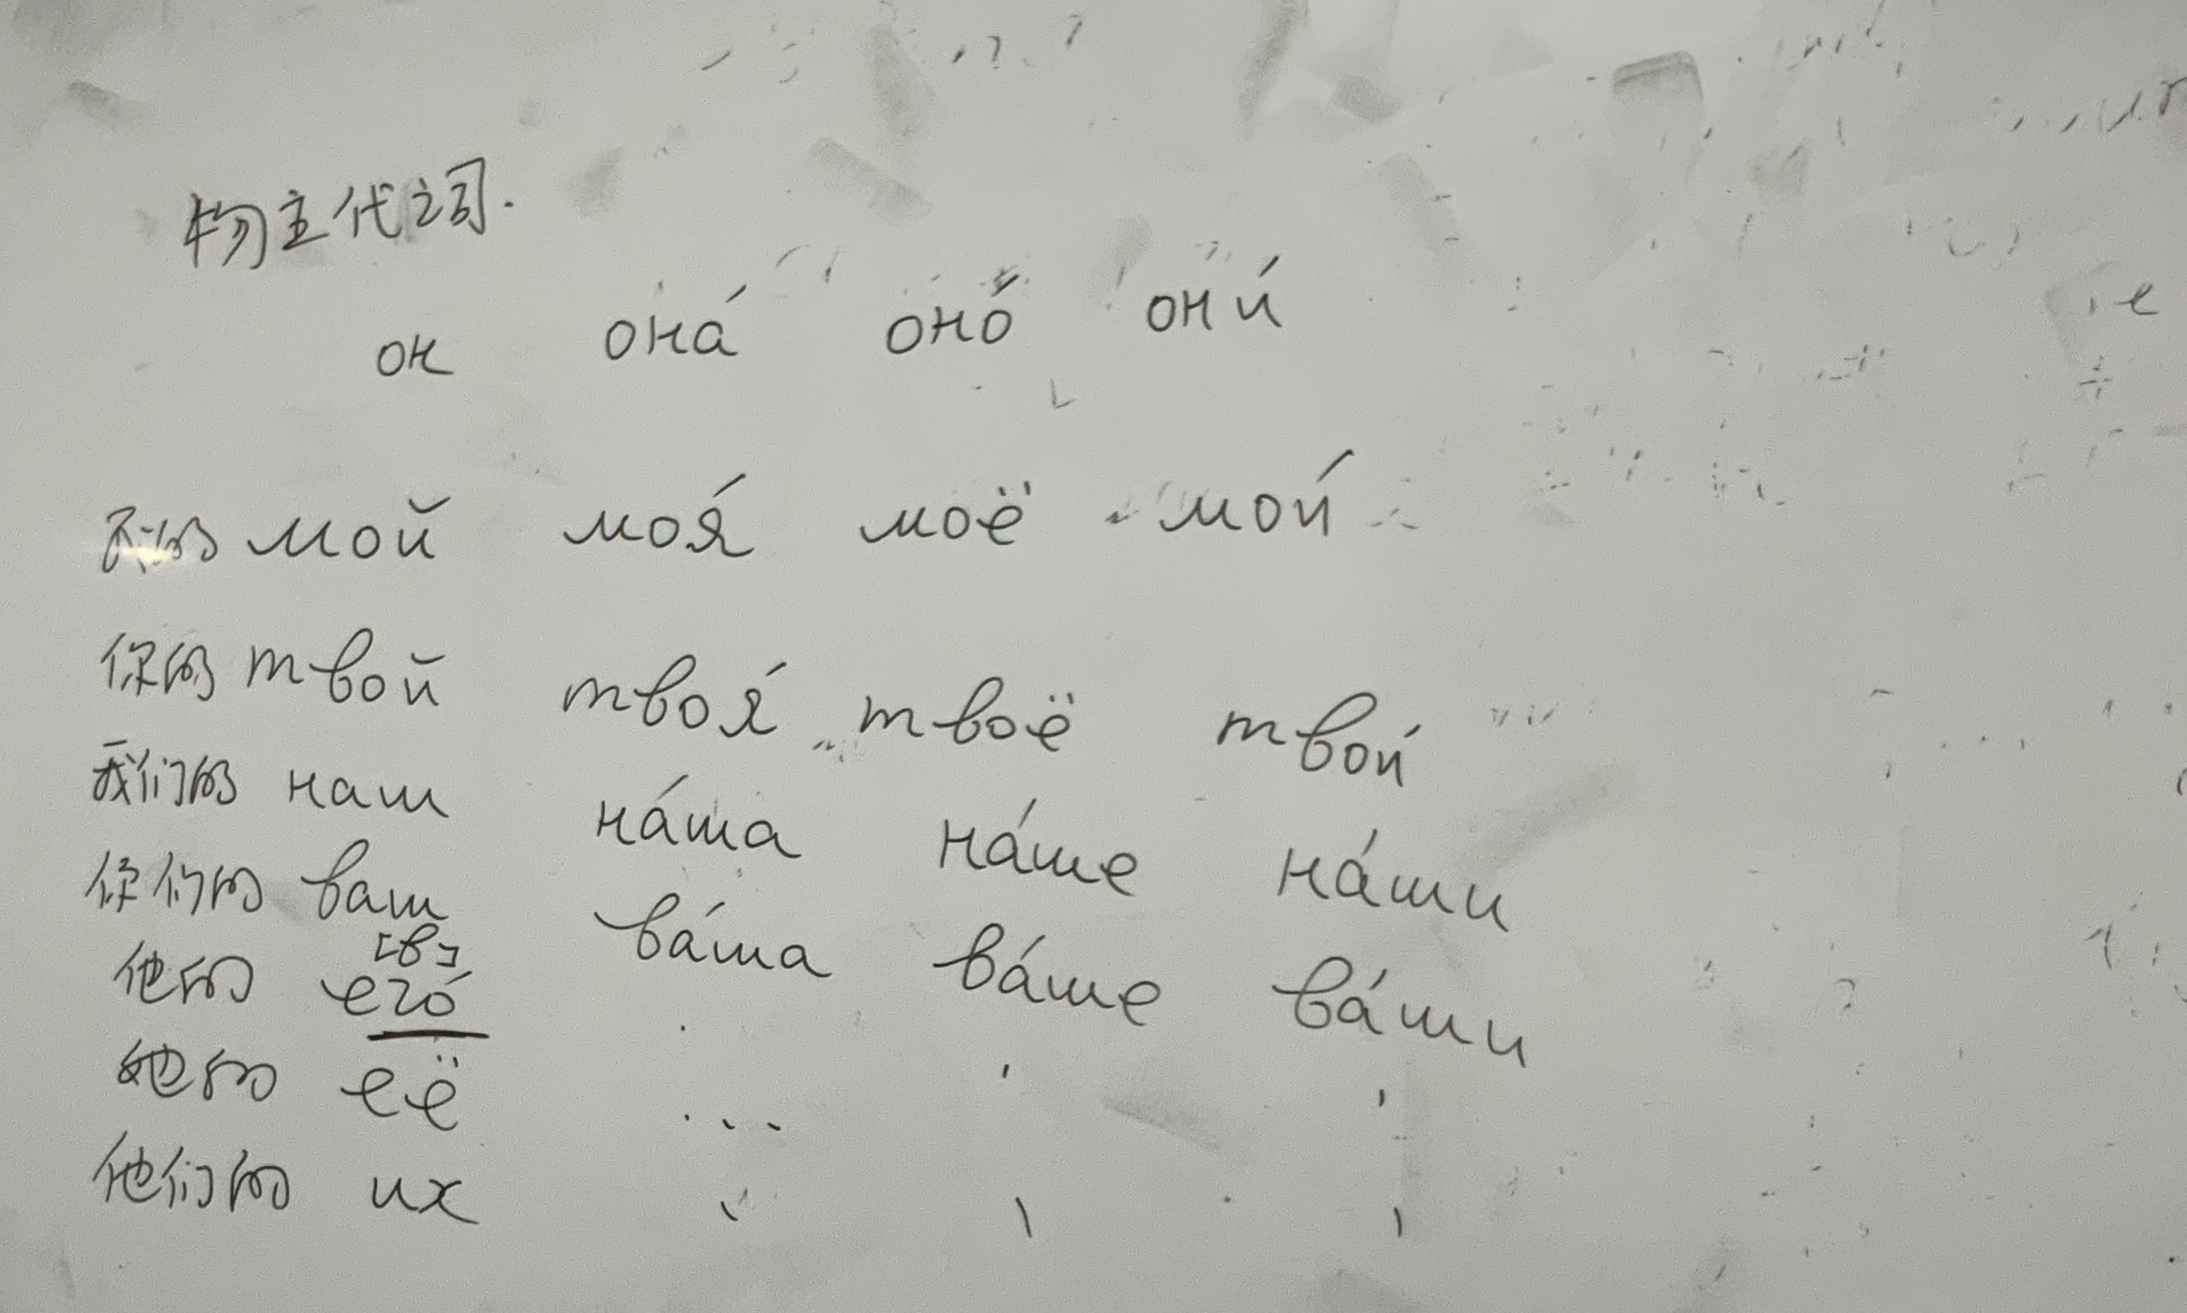 物主代词.
он онá онó они́
我的 мой моя́ моё мои́
你的 твой твоя́ твоё твои́
我们的 наш нáша нáше нáши
你们的 ваш вáша вáше вáши
[в]
他的 егó
她的 её ...
他们的 их